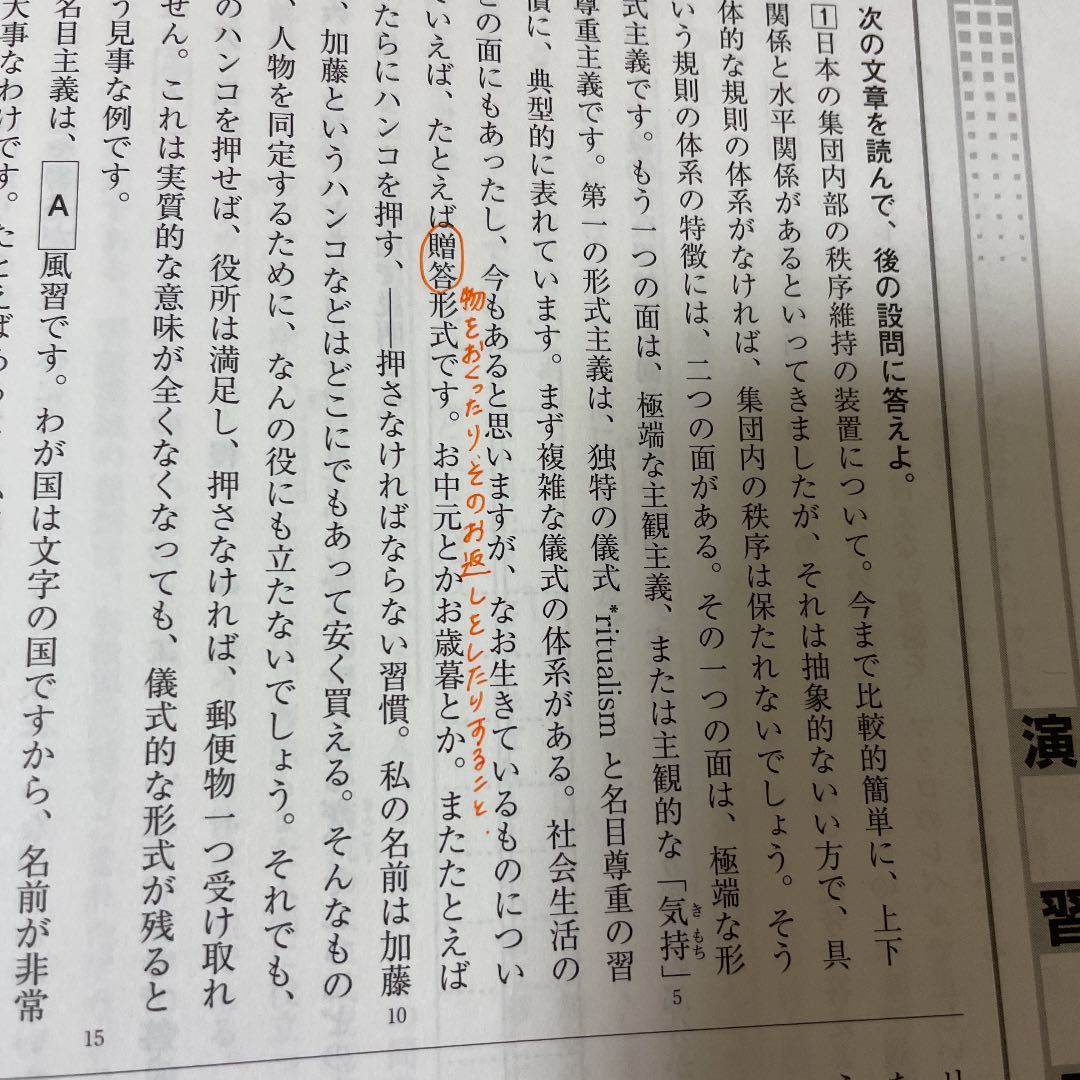 次の文章を読んで、後の設問に答えよ。
1 日本の集団内部の秩序維持の装置について。今まで比較的簡単に、上下
関係と水平関係があるといってきましたが、それは抽象的ないい方で、具
体的な規則の体系がなければ、集団内の秩序は保たれないでしょう。そう
いう規則の体系の特徴には、二つの面がある。その一つの面は、極端な形
式主義です。もう一つの面は、極端な主観主義、または主観的な「気持」
きもち
5
尊重主義です。第一の形式主義は、独特の儀式*ritualismと名目尊重の習
慣に、典型的に表れています。まず複雑な儀式の体系がある。社会生活の
どの面にもあったし、今もあると思いますが、なお生きているものについ
物をおくったり、そのお返しをしたりすること.
ていえば、たとえば贈答形式です。お中元とかお歳暮とか。またたとえば
たらにハンコを押す、――押さなければならない習慣。私の名前は加藤
10
、加藤というハンコなどはどこにでもあって安く買える。そんなもの
、人物を同定するために、なんの役にも立たないでしょう。それでも、
のハンコを押せば、役所は満足し、押さなければ、郵便物一つ受け取れ
せん。これは実質的な意味が全くなくなっても、儀式的な形式が残ると
う見事な例です。
15
名目主義は、A風習です。わが国は文字の国ですから、名前が非常
大事なわけです。たとえば
演
習